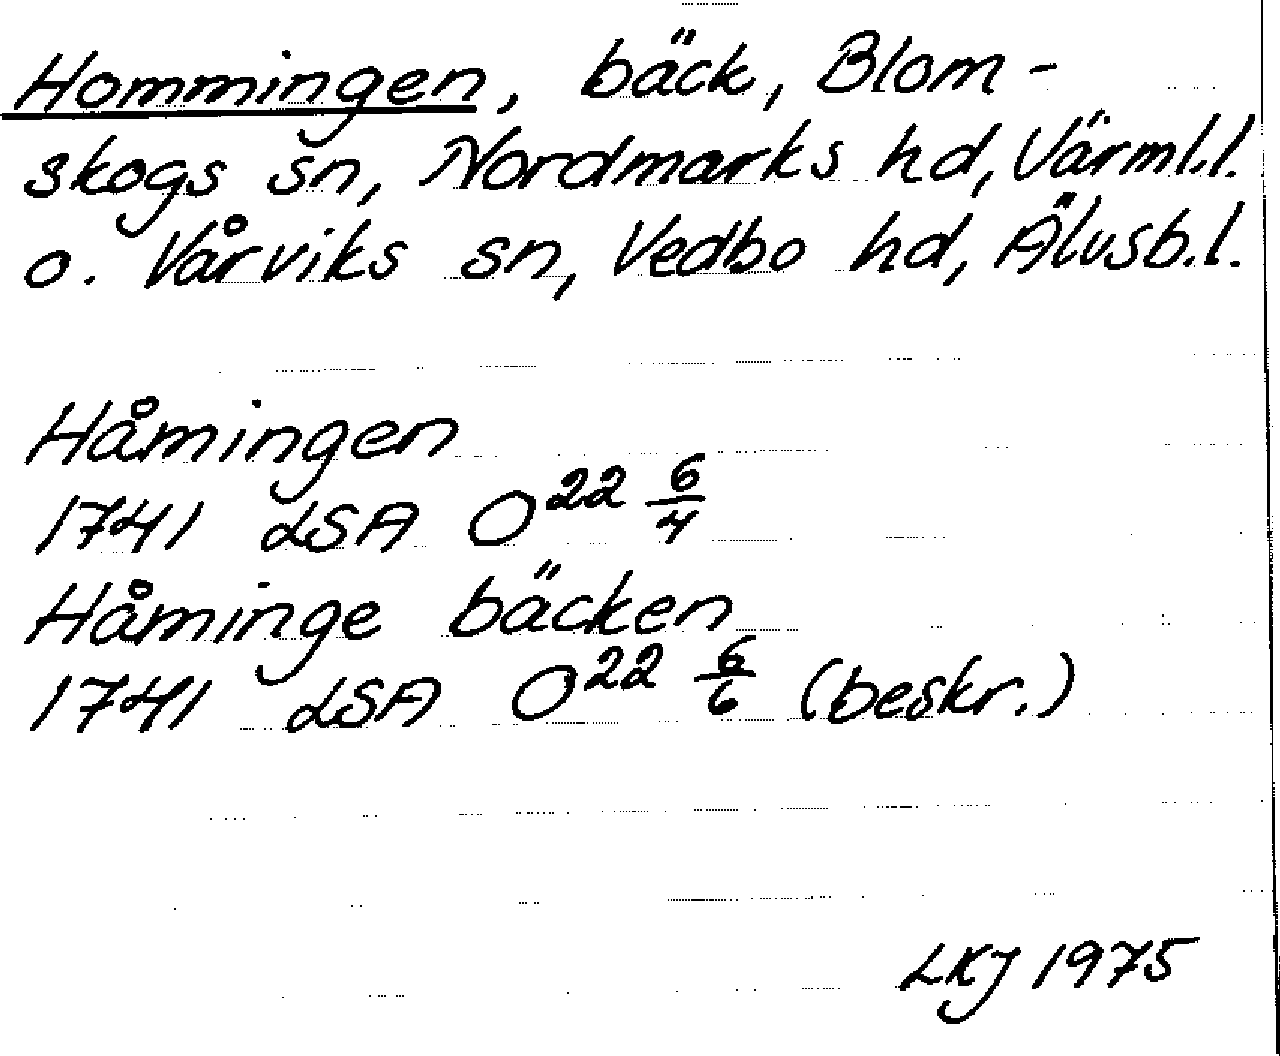 Hommingen, bäck, Blom-
skogs sn, Nordmarks hd, Värml.l.
o. Vårviks sn, Vedbo hd, Älvsb.l.
Håmingen
1741 LSA O²² 6/4
Håminge bäcken
1741 LSA O²² 6/6 (beskr.)
LKJ 1975